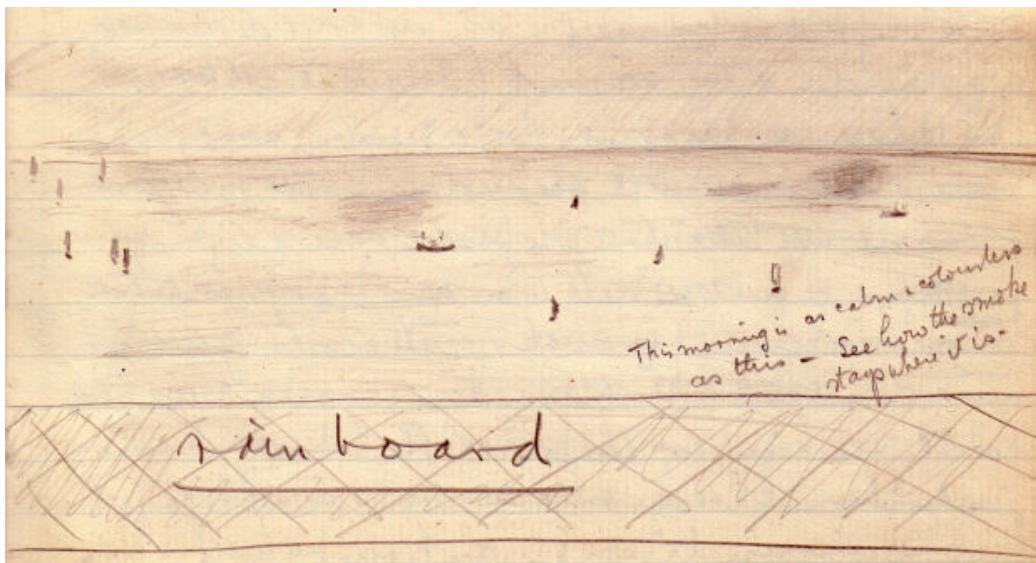 This morning is as calm & colourless
as this – See how the smoke
stays where it is.
rain board